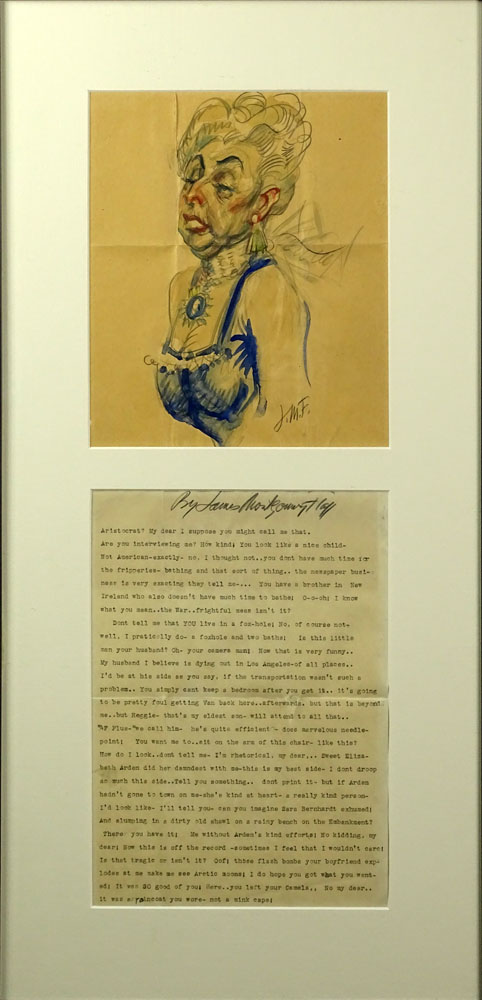 J.M.F.
By James Montgomery Flagg
Aristocrat? My dear I suppose you might call me that.
Are you interviewing me? How kind; You look like a nice child-
Not American-exactly- no, I thought not..you dont have much time for
the fripperies- bathing and that sort of thing.. the newspaper busi-
ness is very exacting they tell me-... You have a brother in New
Ireland who also doesn't have much time to bathe; O-o-oh; I know
what you mean..the War..frightful mess isn't it?
Dont tell me that YOU live in a fox-hole; No, of course not-
well, I pratically do- a foxhole and two baths; Is this little
man your husband? Oh- your camera man; How that is very funny..
My husband I believe is dying out in Los Angeles-of all places..
I'd be at his side as you say, if the transportation wasn't such a
problem.. You simply cant keep a bedroom after you get it.. it's going
to be pretty foul getting Van back here..afterwards. but that is beyond
me..but Reggie- that's my eldest son- will attend to all that..
"My Plus-"we call him- he's quite efficient- does marvelous needle-
point; You want me to..sit on the arm of this chair- like this?
How do I look..dont tell me- I'm rhetorical, my dear... Sweet Eliza-
beth Arden did her damndest with me-this is my best side- I dont droop
so much this side..Tell you something.. dont print it- but if Arden
hadn't gone to town on me-she's kind at heart- a really kind person-
I'd look like- I'll tell you- can you imagine Sara Bernhardt exhumed;
And slumping in a dirty old shawl on a rainy bench on the Embankment?
There; you have it; Me without Arden's kind efforts; No kidding, my
dear; Now this is off the record -sometimes I feel that I wouldn't care;
Is that tragic or isn't it? Oof; those flash bombs your boyfriend exp-
lodes at me make me see Arctic moons; I do hope you got what you want-
ed; It was SO good of you; Here..you left your Camels., No my dear..
it was a raincoat you wore- not a mink cape;